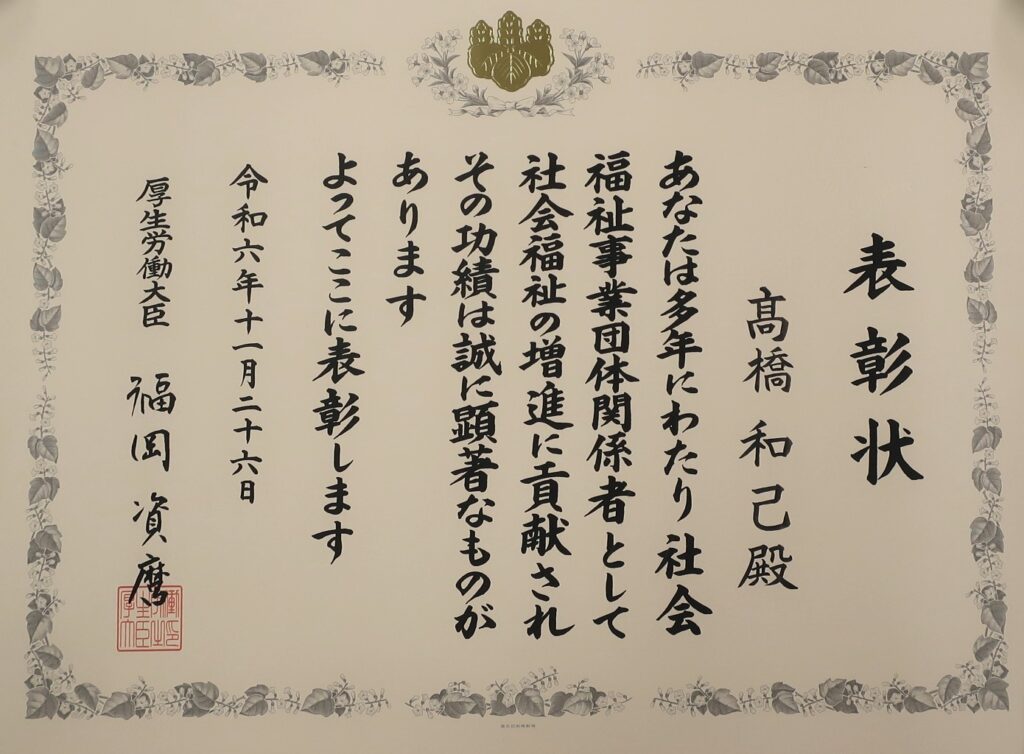 表彰状
髙橋和己殿
あなたは多年にわたり社会
福祉事業団体関係者として
社会福祉の増進に貢献され
その功績は誠に顕著なものが
あります
よってここに表彰します
令和六年十一月二十六日
厚生労働大臣 福岡資麿